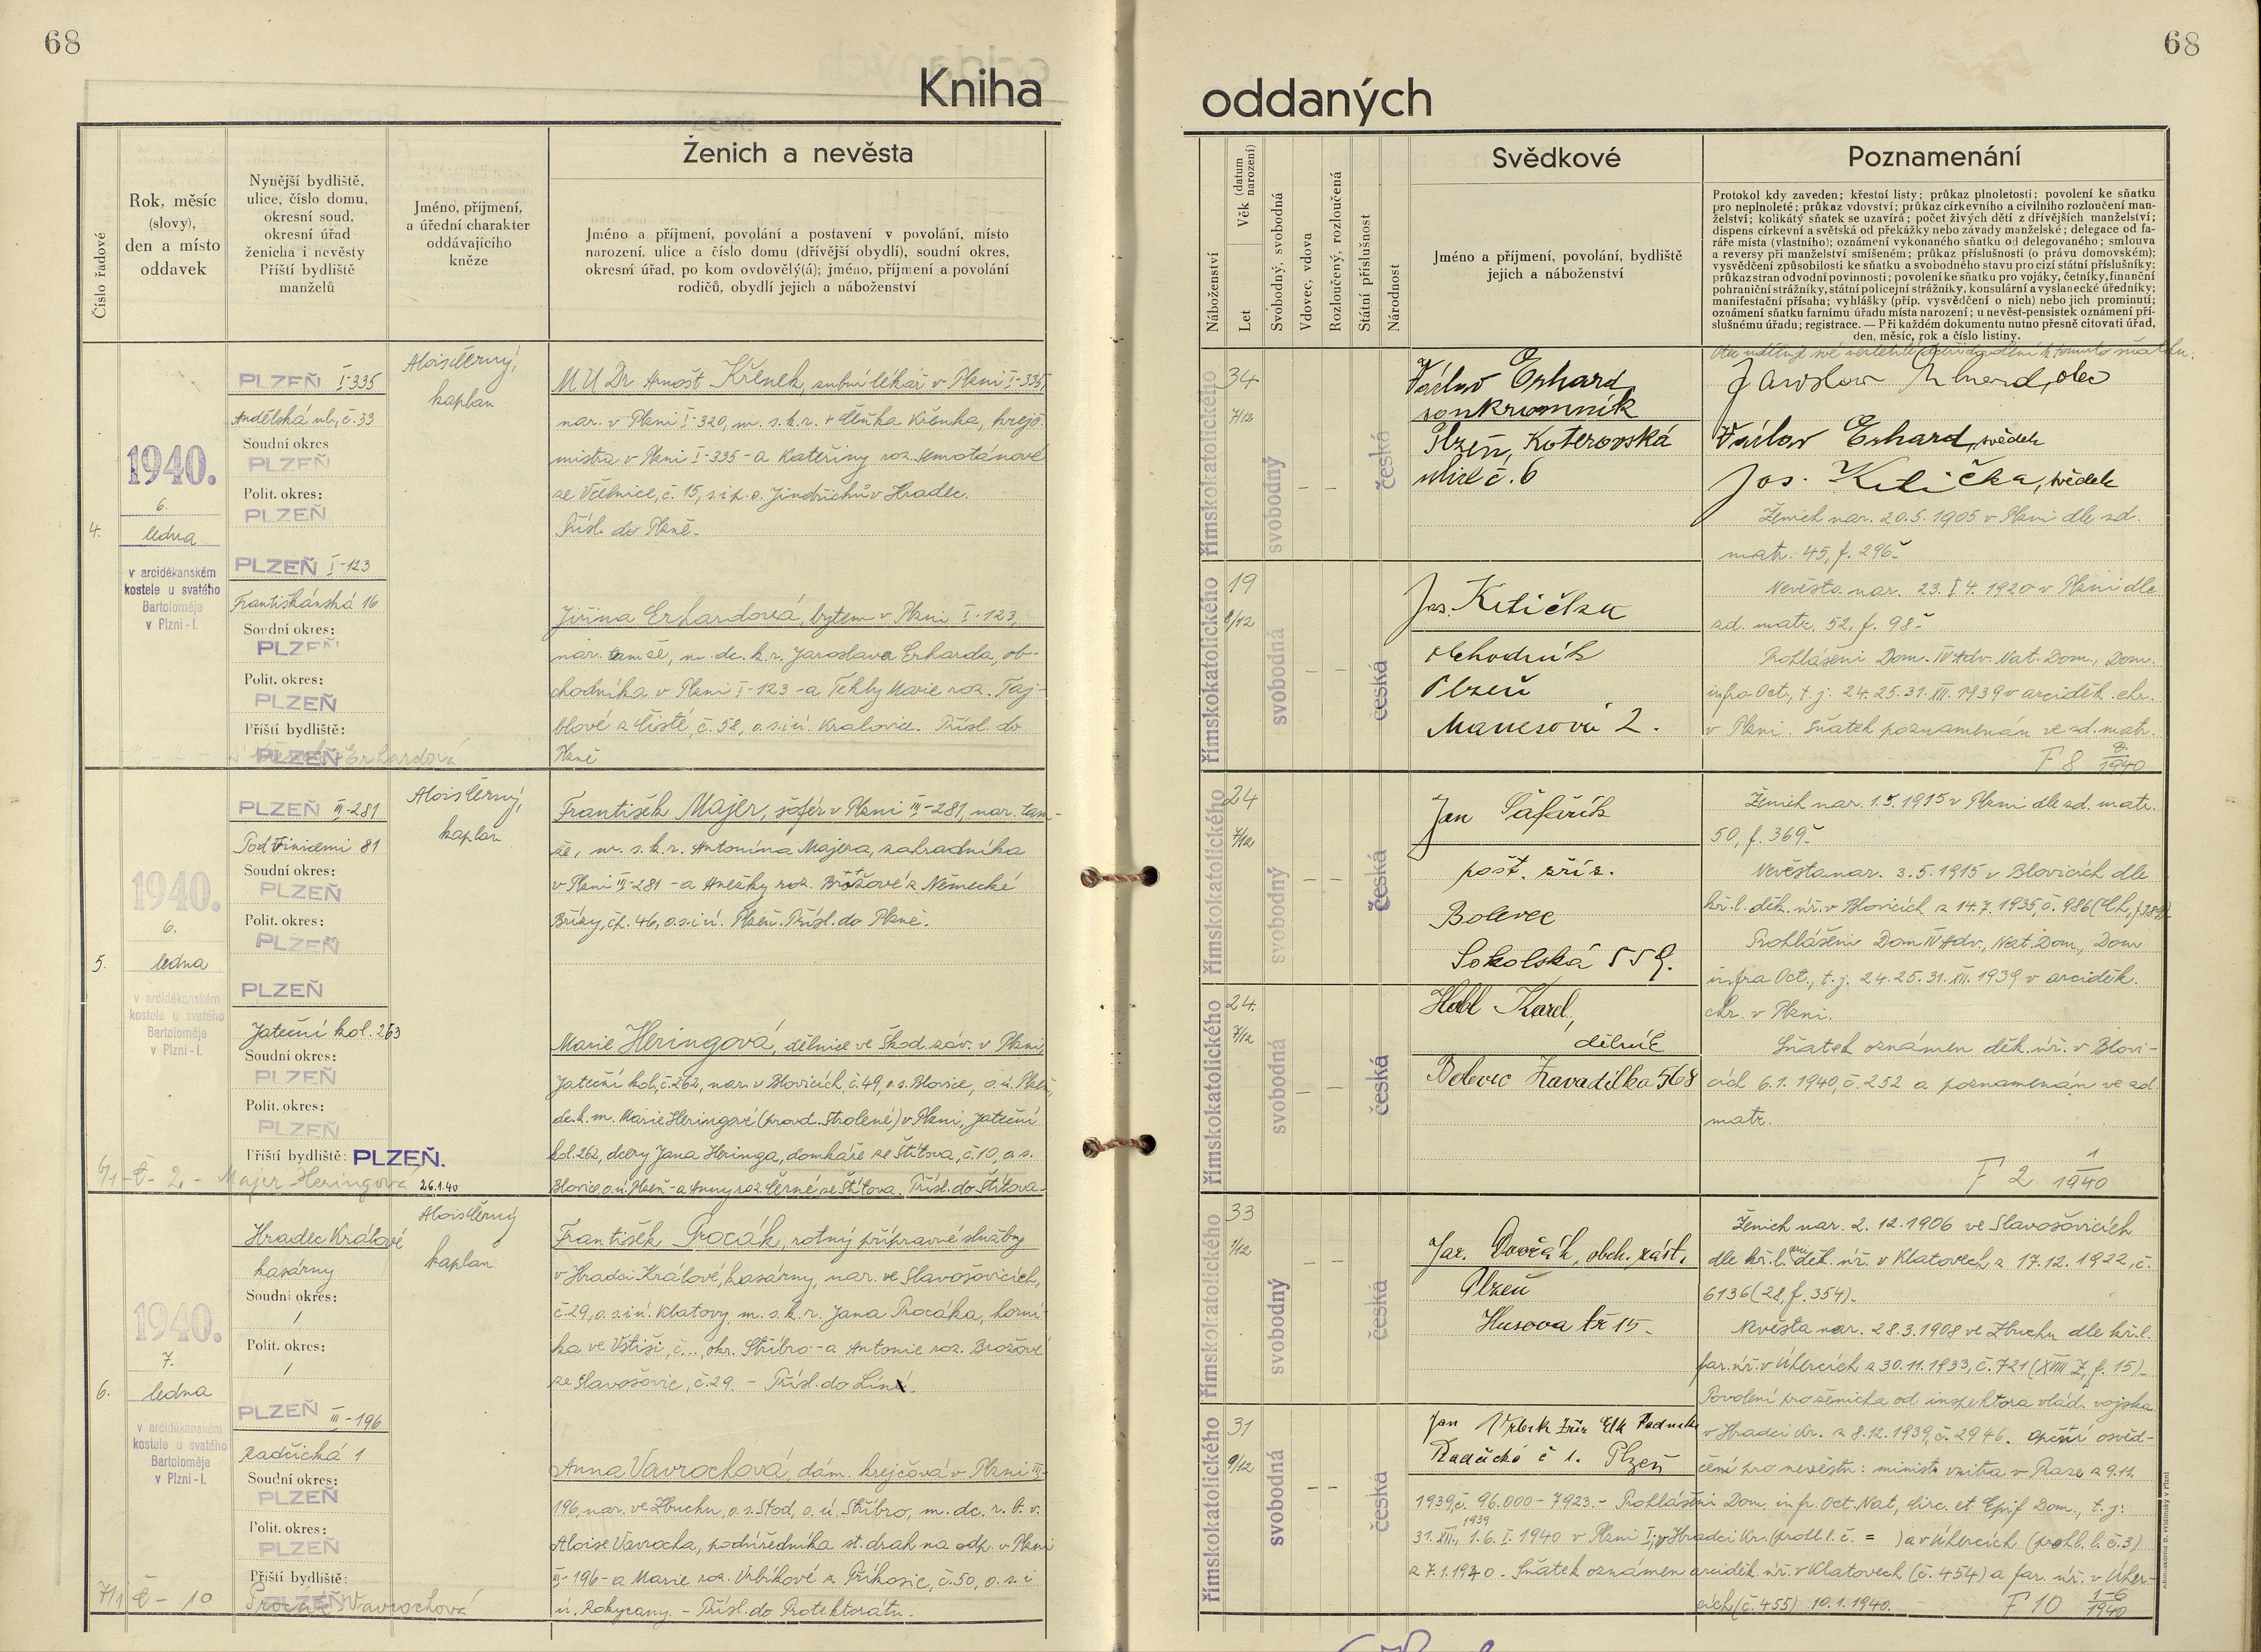 68
68
Kniha
oddaných
Číslo řadové
Rok, měsíc
(slovy),
den a místo
oddavek
Nynější bydliště,
ulice, číslo domu,
okresní soud,
okresní úřad
ženicha i nevěsty
Příští bydliště
manželů
Jméno, příjmení,
a úřední charakter
oddávajícího
kněze
Ženich a nevěsta
Jméno a příjmení, povolání a postavení v povolání, místo
narození, ulice a číslo domu (dřívější obydlí), soudní okres,
okresní úřad, po kom ovdovělý(á); jméno, příjmení a povolání
rodičů, obydlí jejich a náboženství
Náboženství
Let
Věk (datum narození)
Svobodný, svobodná
Vdovec, vdova
Rozloučený, rozloučená
Státní příslušnost
Národnost
Svědkové
Jméno a příjmení, povolání, bydliště
jejich a náboženství
Poznamenání
Protokol kdy zaveden; křestní listy; průkaz plnoletosti; povolení ke sňatku
pro neplnoleté; průkaz vdovství; průkaz církevního a civilního rozloučení man-
želství; kolikátý sňatek se uzavírá; počet živých dětí z dřívějších manželství;
dispens církevní a světská od překážky nebo závady manželské; delegace od fa-
ráře místa (vlastního); oznámení vykonaného sňatku od delegovaného; smlouva
a reversy při manželství smíšeném; průkaz příslušnosti (o právu domovském);
vysvědčení způsobilosti ke sňatku a svobodného stavu pro cizí státní příslušníky;
průkaz stran odvodní povinnosti; povolení ke sňatku pro vojáky, četníky, finanční
pohraniční strážníky, státní policejní strážníky, konsulární a vyslanecké úředníky;
manifestační přísaha; vyhlášky (příp. vysvědčení o nich) nebo jich prominutí;
oznámení sňatku farnímu úřadu místa narození; u nevěst-pensistek oznámení pří-
slušnému úřadu; registrace. — Při každém dokumentu nutno přesně citovati úřad,
den, měsíc, rok a číslo listiny.
4.
1940.
6.
ledna
v arciděkanském
kostele u svatého
Bartoloměje
v Plzni-I.
PLZEŇ I-335
Andělská ul., č. 33
Soudní okres
PLZEŇ
Polit. okres:
PLZEŇ
PLZEŇ I-123
Františkánská 16
Soudní okres:
PLZEŇ
Polit. okres:
PLZEŇ
Příští bydliště:
PLZEŇ
Erhardová
Alois Černý,
kaplan
MUDr Arnošt Křenek, zubní lékař v Plzni I-335,
nar. v Plzni I-320, m. s. k. r. + Čeňka Křenka, krejč.
mistra v Plzni I-335 - a Kateřiny roz. Semotánové
ze Včelnice, č. 15, s. i p. o. Jindřichův Hradec.
Přísl. do Plzně.
Jiřina Erhardová, bytem v Plzni I-123,
nar. tamže, m. dc. k. r. Jaroslava Erharda, ob-
chodníka v Plzni I-123 - a Tekly Marie roz. Taj-
blové z Čisté, č. 58, o. s. i ú. Kralovice. Přísl. do
Plzně
římskokatolického
34
7/12
svobodný
– –
česká
Václav Erhard
soukromník
Plzeň, Koterovská
ulice č. 6
římskokatolického
19
8/12
svobodná
– –
česká
Jos. Kitička
obchodník
Plzeň
Manesova 2.
Jaroslav Erhard, otec
Václav Erhard, svědek
Jos. Kitička, svědek
Ženich nar. 20. 5. 1905 v Plzni dle zd.
matr. 45, f. 296.
Nevěsta nar. 23. 4. 1920 v Plzni dle
zd. matr. 52, f. 98.
Prohlášeni Dom. IV Adv. Nat. Dom., Dom.
infra Oct., t. j. 24. 25. 31. XII. 1939 v arciděk. chr.
v Plzni. Sňatek poznamenán ve zd. matr.
F 8 8/1940
5.
1940.
6.
ledna
v arciděkanském
kostele u svatého
Bartoloměje
v Plzni-I.
PLZEŇ III-281
Pod Vinicemi 81
Soudní okres:
PLZEŇ
Polit. okres:
PLZEŇ
PLZEŇ
Jateční kol. 263
Soudní okres:
PLZEŇ
Polit. okres:
PLZEŇ
Příští bydliště: PLZEŇ.
6/1 - č - 2. - Majer Heringová 26.1.40
Alois Černý,
kaplan
František Majer, šofér v Plzni III-281, nar. tam-
že, m. s. k. r. Antonína Majera, zahradníka
v Plzni III-281 - a Anežky roz. Brožové z Německé
Břízy, čp. 46, o. s. i ú. Plzeň. Přísl. do Plzně.
Marie Heringová, dělnice ve Škod. záv. v Plzni,
Jateční kol., č. 262, nar. v Blovicích, č. 49, o. s. Blovice, o. ú. Plzeň,
dc. k. m. Marie Heringové (provd. Strolené) v Plzni, Jateční
kol. 262, dcery Jana Heringa, domkáře ze Štítova, č. 10, o. s.
Blovice, o. ú. Plzeň - a Anny roz. Černé ze Štítova. Přísl. do Štítova.
římskokatolického
24
7/12
svobodný
– –
česká
Jan Šafařík
pošt. zříz.
Bolevec
Sokolská 559.
římskokatolického
24.
7/12
svobodná
– –
česká
Hobl Karel,
dělník
Bolevec Zavadilka 568
Ženich nar. 1. 5. 1915 v Plzni dle zd. matr.
50, f. 369.
Nevěsta nar. 3. 5. 1915 v Blovicích dle
kř. l. děk. úř. v Blovicích z 14. 7. 1935, č. 986
Prohlášeni Dom IV Adv., Nat. Dom., Dom
infra Oct., t. j. 24. 25. 31. XII. 1939 v arciděk.
chr. v Plzni.
Sňatek oznámen děk. úř. v Blovi-
cích 6. 1. 1940, č. 252 a poznamenán ve zd.
matr.
F 2 1/1940
6.
1940.
7.
ledna
v arciděkanském
kostele u svatého
Bartoloměje
v Plzni-I.
Hradec Králové
kasárny
Soudní okres:
/
Polit. okres:
/
PLZEŇ III-196
Radčická 1
Soudní okres:
PLZEŇ
Polit. okres:
PLZEŇ
Příští bydliště:
PLZEŇ
7/1 č - 10 Procák Vavrochová
Alois Černý
kaplan
František Procák, rotný přípravné služby
v Hradci Králové, kasárny, nar. ve Slavošovicích,
č. 29, o. s. i ú. Klatovy, m. s. k. r. Jana Procáka, horní-
ka ve Vstiši, č... okr. Stříbro - a Antonie roz. Brožové
ze Slavošovic, č. 29. - Přísl. do Líně.
Anna Vavrochová, dám. krejčová v Plzni III-
196, nar. ve Zbuchu, o. s. Stod, o. ú. Stříbro, m. dc. r. k. v.
Aloise Vavrocha, podúředníka st. drah na odp. v Plzni
III-196 - a Marie roz. Vrbíkové z Příkosic, č. 50, o. s. i
ú. Rokycany. - Přísl. do Protektorátu.
římskokatolického
33
1/12
svobodný
– –
česká
Jar. Dvořák, obch. zást.
Plzeň
Husova tř 15.
římskokatolického
31
9/12
svobodná
– –
česká
Jan
Radčická č 1. Plzeň
Ženich nar. 2. 12. 1906 ve Slavošovicích
dle kř. l. arciděk. úř. v Klatovech z 17. 12. 1922, č.
6136 (28, f. 354).
Nevěsta nar. 28. 3. 1908 ve Zbuchu dle kř. l.
far. úř. v Úhercích z 30. 11. 1933, č. 721 (XVIII Z, f. 15).
Povolení pro ženicha od inspektora vlád. vojska
v Hradci Kr. z 8. 12. 1939, č. 2946. osvěd-
čení pro nevěstu: minist. vnitra v Praze z 9. 12.
1939, č. 96.000 - 7923. - Prohlášeni Dom. infr. Oct. Nat., Circ. et Epif Dom., t. j:
31. XII. 1939, 1. 6. I. 1940 v Plzni I, v Hradci Kr. (prohl. l. č. = ) a v Úhercích (prohl. l. č. 3)
z 7. 1. 1940. Sňatek oznámen arciděk. úř. v Klatovech (č. 454) a far. úř. v Úher-
cích (č. 455) 10. 1. 1940. F 10 1-6/1940